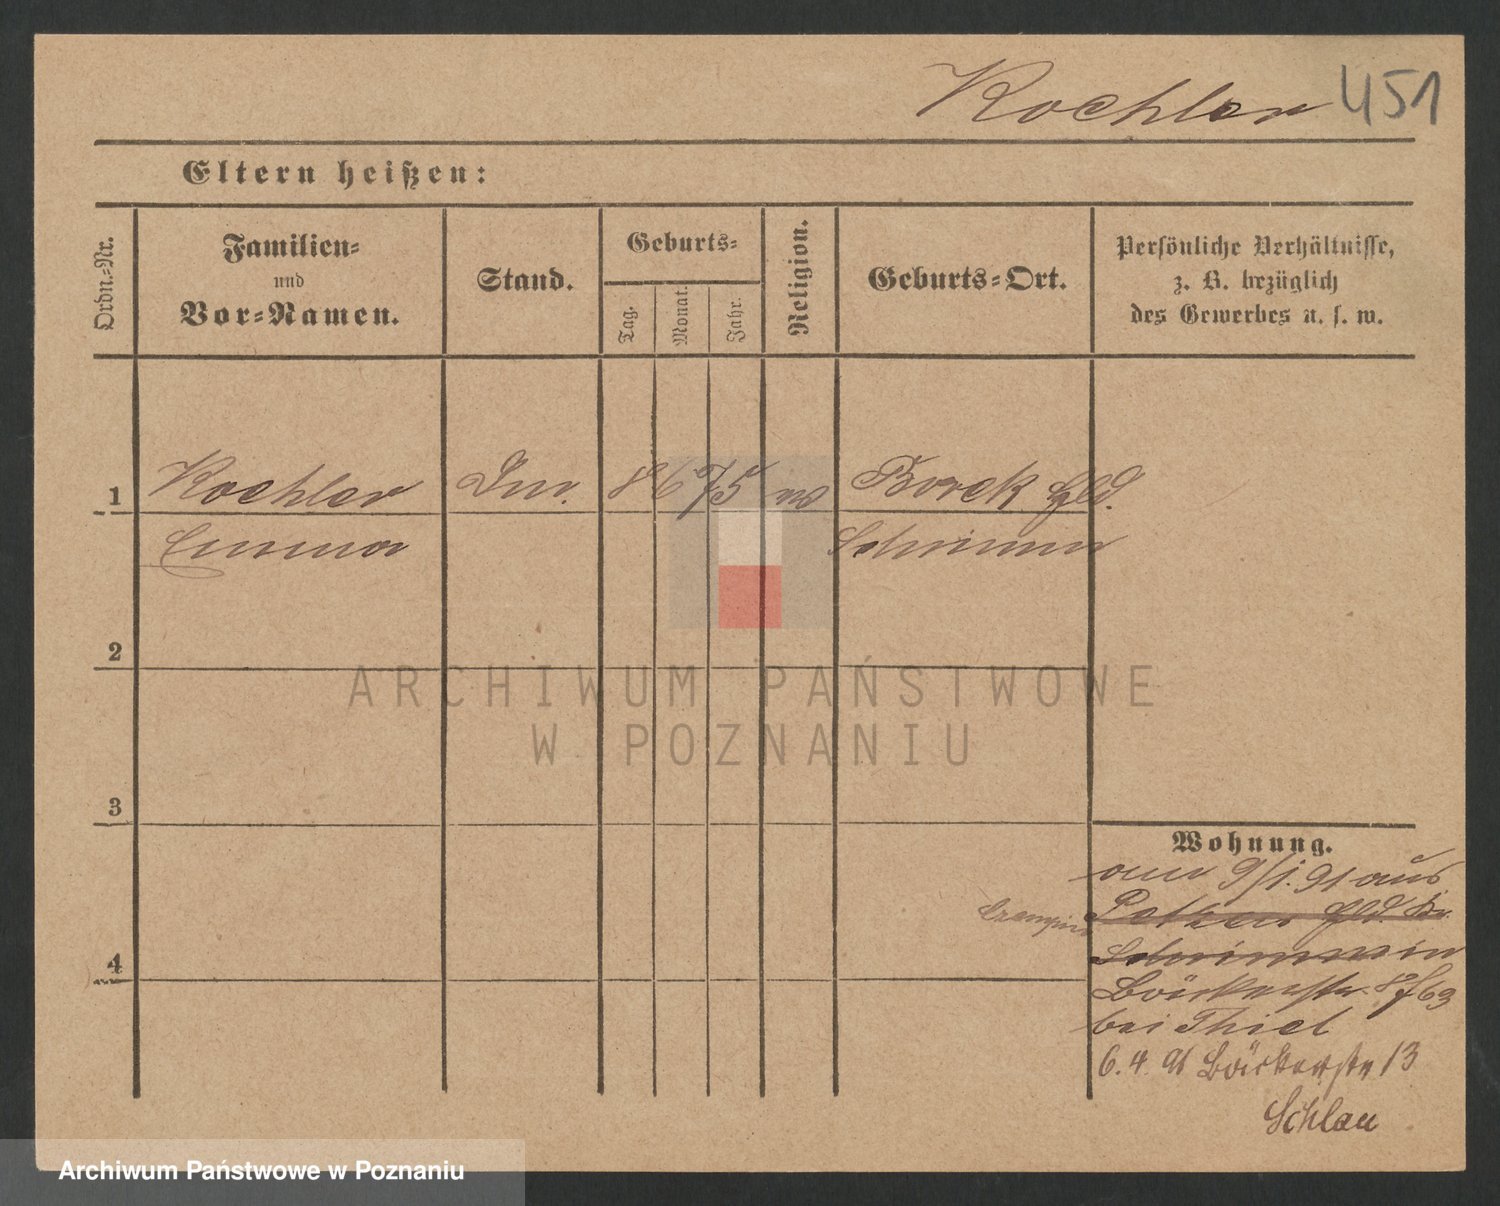 Koehler 451
Eltern heißen:
Ordn.-Nr.
Familien-
und
Vor-Namen.
Stand.
Geburts-
Tag.
Monat.
Jahr.
Religion.
Geburts-Ort.
Persönliche Verhältnisse,
z. B. bezüglich
des Gewerbes u. s. w.
1
Koehler
8 6 75
Borek
Emma
Schrimm
2
ARCHIWUM PAŃSTWOWE
W POZNANIU
3
Wohnung.
am 9/1. 91 aus
4
Schrimm in
Bäckerstr.
bei Thiel
6. 4 91 Bäckerstr 13
Schlau
Archiwum Państwowe w Poznaniu